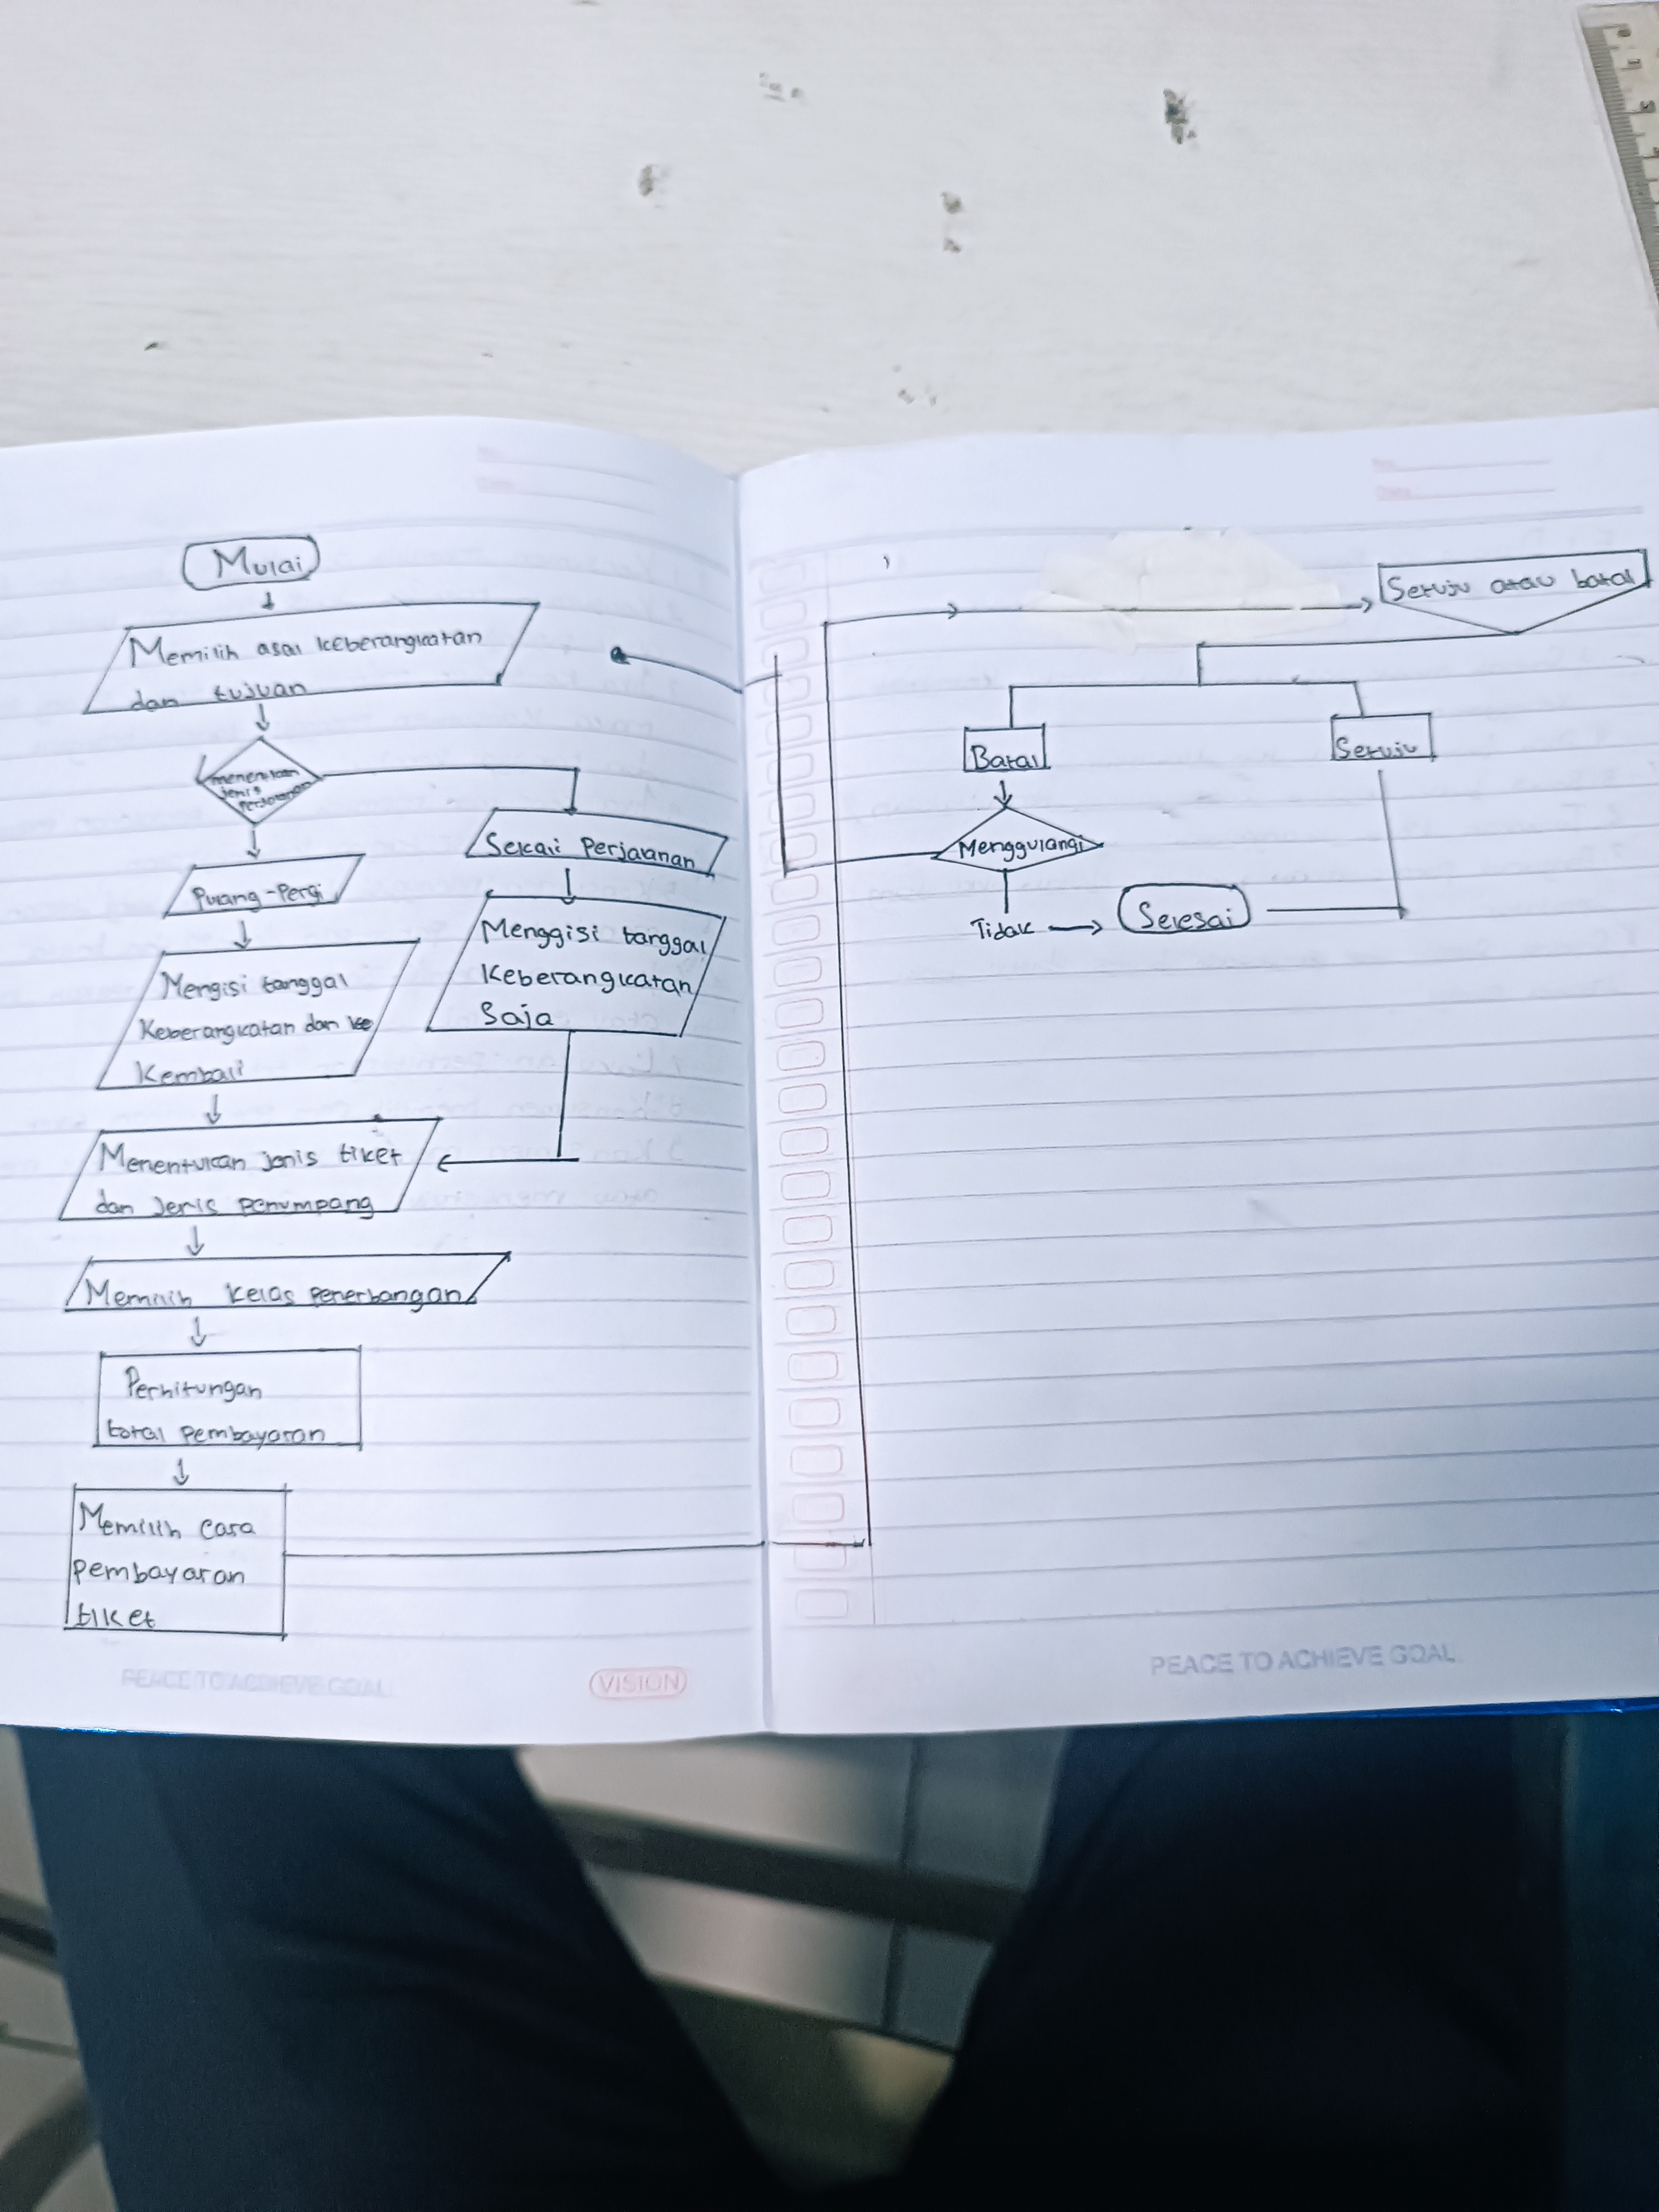 Mulai
Memilih asal keberangkatan
dan tujuan
menentukan
jenis
perjalanan
Pulang-Pergi
Sekali Perjalanan
Mengisi tanggal
Keberangkatan dan ke
Kembali
Menggisi tanggal
Keberangkatan
Saja
Menentukan jenis tiket
dan Jenis penumpang
Memilih Kelas penerbangan
Perhitungan
total pembayaran
Memilih Cara
pembayaran
tiket
PEACE TO ACHIEVE GOAL
VISION
Setuju atau batal
Batal
Setuju
Menggulangi
Tidak
Selesai
PEACE TO ACHIEVE GOAL